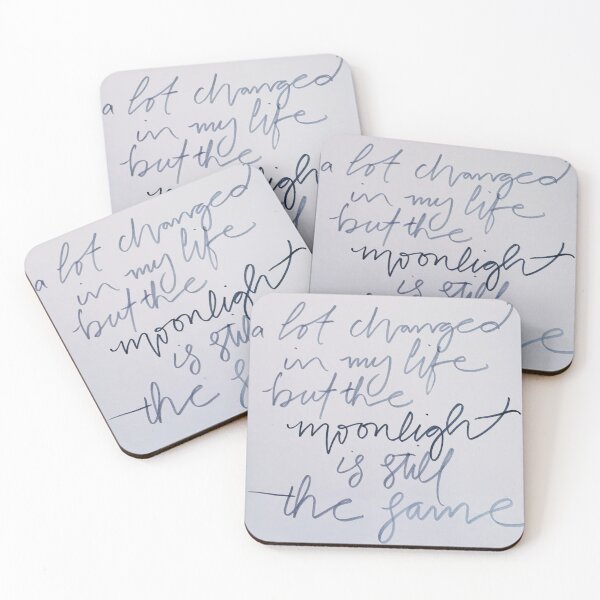 a lot changed
in my life
but the
a lot changed
in my life
but the
moonlight
is still
a lot changed
in my life
but the
moonlight
is still
the
a lot changed
in my life
but the
moonlight
is still
the same